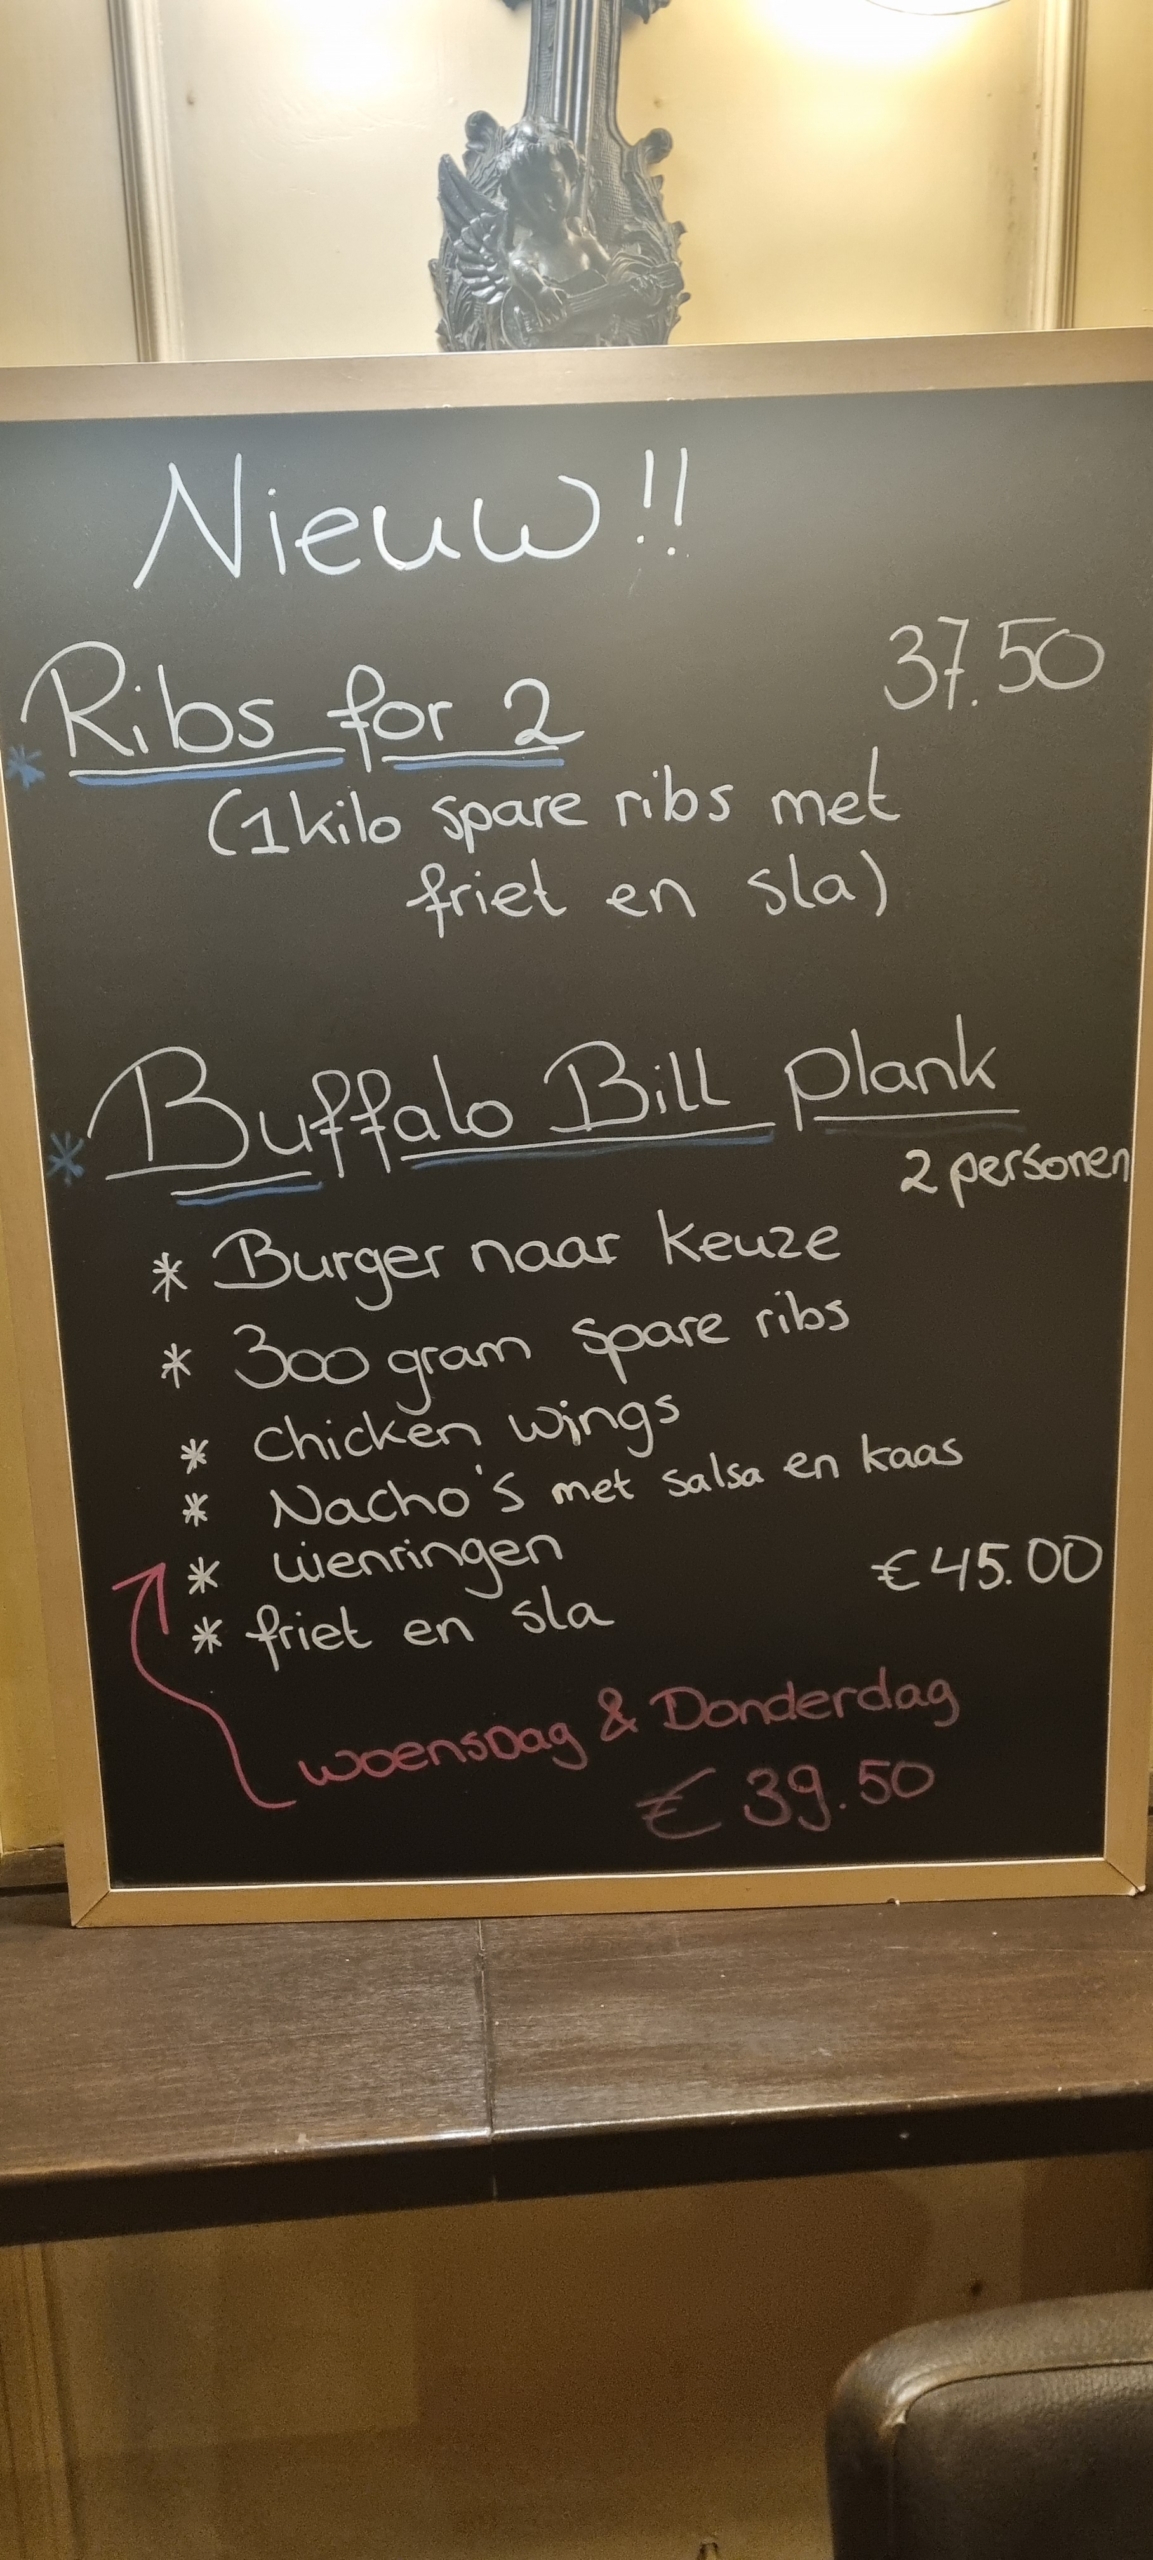 Nieuw!!
Ribs for 2 37.50
(1 kilo spare ribs met
friet en sla)
Buffalo Bill plank
2 personen
* Burger naar keuze
* 300 gram spare ribs
* Chicken wings
* Nacho's met salsa en kaas
* uienringen €45.00
* friet en sla
woensDag & Donderdag
€ 39.50